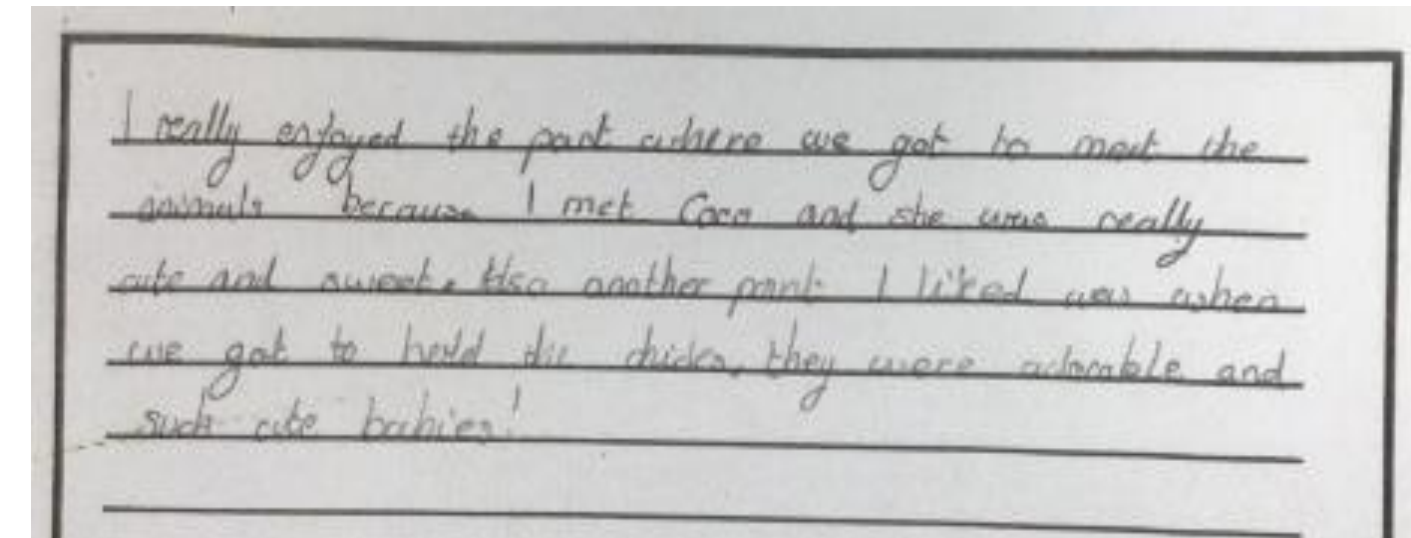 I really enjoyed the part where we got to meet the
animals because I met Coco and she was really
cute and sweet. Also another part I liked was when
we got to hold the chicks, they were adorable and
such cute babies!